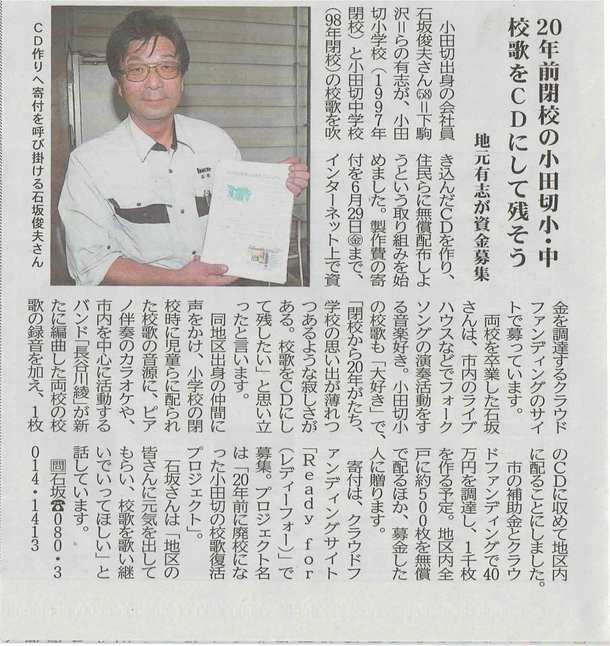 20年前閉校の小田切小・中
校歌をCDにして残そう
地元有志が資金募集
小田切出身の会社員
石坂俊夫さん(58)=下駒
沢=らの有志が、小田
切小学校(1997年
閉校)と小田切中学校
(98年閉校)の校歌を吹
き込んだCDを作り、
住民らに無償配布しよ
うという取り組みを始
めました。製作費の寄
付を6月29日㊎まで、
インターネット上で資
金を調達するクラウド
ファンディングのサイ
トで募っています。
両校を卒業した石坂
さんは、市内のライブ
ハウスなどでフォーク
ソングの演奏活動をす
る音楽好き。小田切小
の校歌も「大好き」で、
「閉校から20年がたち、
学校の思い出が薄れつ
つあるような寂しさが
ある。校歌をCDにし
て残したい」と思い立
ったと言います。
同地区出身の仲間に
声をかけ、小学校の閉
校時に児童らに配られ
た校歌の音源に、ピア
ノ伴奏のカラオケや、
市内を中心に活動する
バンド「長谷川綾」が新
たに編曲した両校の校
歌の録音を加え、1枚
のCDに収めて地区内
に配ることにしました。
市の補助金とクラウ
ドファンディングで40
万円を調達し、1千枚
を作る予定。地区内全
戸に約500枚を無償
で配るほか、募金した
人に贈ります。
寄付は、クラウドフ
ァンディングサイト
「Ready for
(レディーフォー)」で
募集。プロジェクト名
は「20年前に廃校にな
った小田切の校歌復活
プロジェクト」。
石坂さんは「地区の
皆さんに元気を出して
もらい、校歌を歌い継
いでいってほしい」と
話しています。
問石坂☎080・3
014・1413
CD作りへ寄付を呼び掛ける石坂俊夫さん